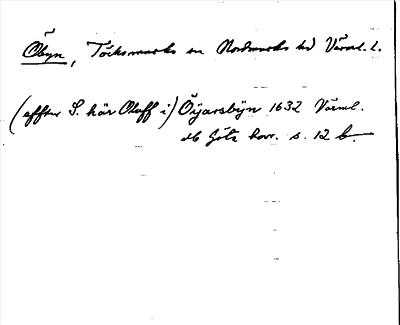 Öbyn, Töcksmarks sn Nordmarks hd Värml. l.
(efftter S. här Oluff i) Öijarsbÿn 1632 Värml.
db Göta hovr. s. 12 b.